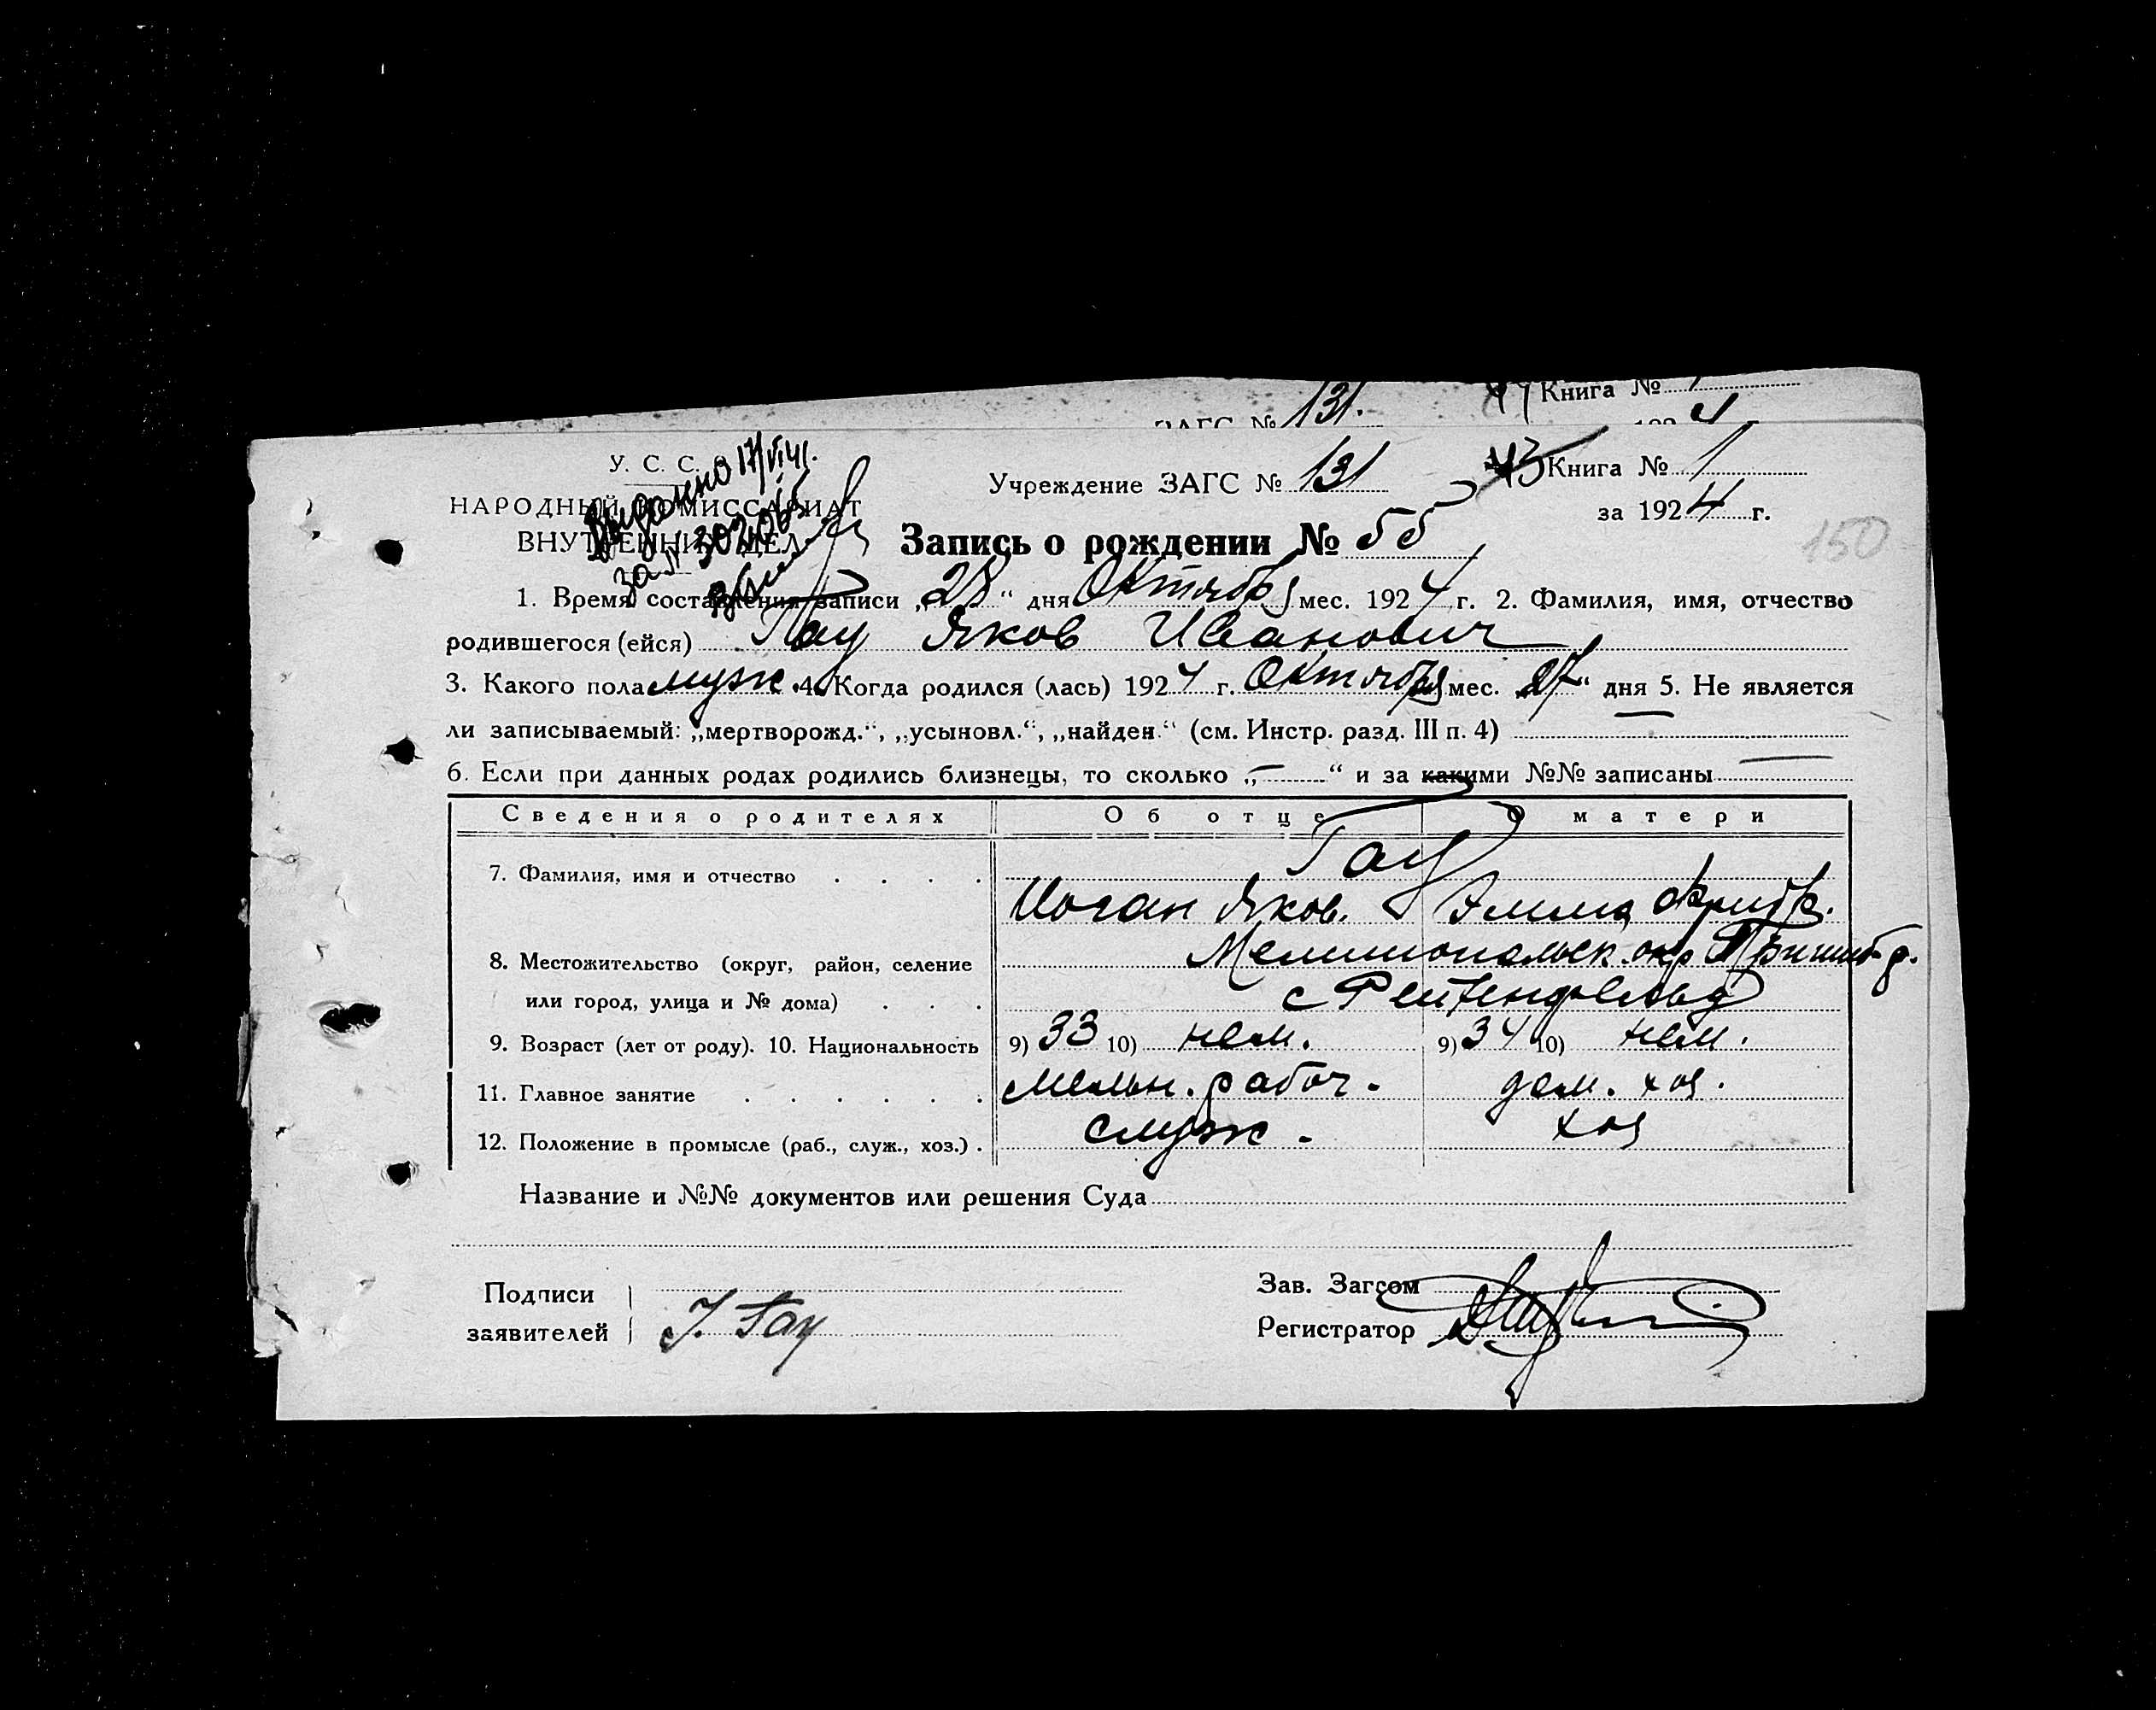 131. 44 Книга №
ЗАГС № 1924
У. С. С.
Выдано 17/VI 41.
за № 302065
НАРОДНЫЙ КОМИССАРИАТ
ВНУТРЕННИХ ДЕЛ
Учреждение ЗАГС № 131 43 Книга № 1
за 1924 г.
Запись о рождении № 55
150
1. Время составления записи „28“ дня Октября мес. 1924 г. 2. Фамилия, имя, отчество
родившегося (ейся) Гау Яков Иванович
3. Какого пола муж. 4. Когда родился (лась) 1924 г. Октября мес. „27“ дня 5. Не является
ли записываемый: „мертворожд.“, „усыновл.“, „найден.“ (см. Инстр. разд. III п. 4) —
6. Если при данных родах родились близнецы, то сколько „—“ и за какими №№ записаны —
Сведения о родителях Об отце О матери
7. Фамилия, имя и отчество . . . . Гау
Иоган Яков. Эмма Фридр.
8. Местожительство (округ, район, селение Мелитопольск. окр Пришиб р.
или город, улица и № дома) . . . с Рейхенфельд
9. Возраст (лет от роду). 10. Национальность 9) 33 10) нем. 9) 34 10) нем.
11. Главное занятие . . . . . . мельн. рабоч. дом. хоз.
12. Положение в промысле (раб., служ., хоз.) . служ. хоз
Название и №№ документов или решения Суда
Подписи
заявителей
J. Гау
Зав. Загсом
Регистратор